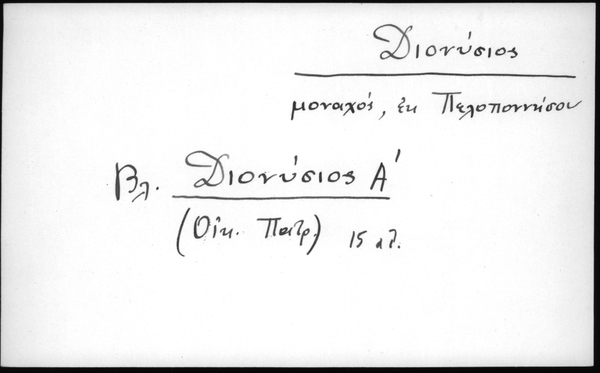 Διονύσιος
μοναχός, ἐκ Πελοποννήσου
Βλ. Διονύσιος Α'
(Οἰκ. Πατρ.) 15 αἰ.